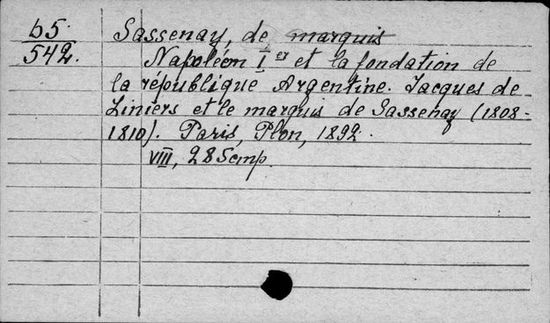 b5
542.
Sassenay, de marquis
Napoléon Iᵉʳ et la fondation de
la république Argentine. Jacques de
Liniers et le marquis de Sassenay (1808-
1810). Paris, Plon, 1892.
VIII, 285 стр.